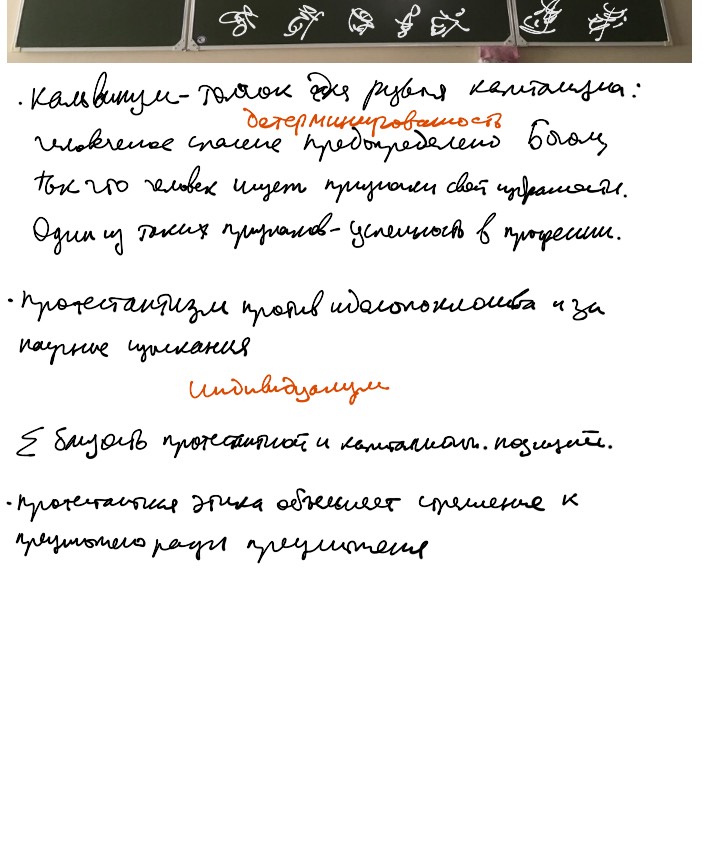 · Кальвинизм – толчок для развития капитализма:
детерминированность
человеческое спасение предопределено Богом,
так что человек ищет признаки своей избранности.
Один из таких признаков – успешность в профессии.
· Протестантизм против идолопоклонства и за
научные изыскания
индивидуализм
Σ близость протестантской и капиталист. позиций.
· Протестантская этика объясняет стремление к
преумножению ради преумножения